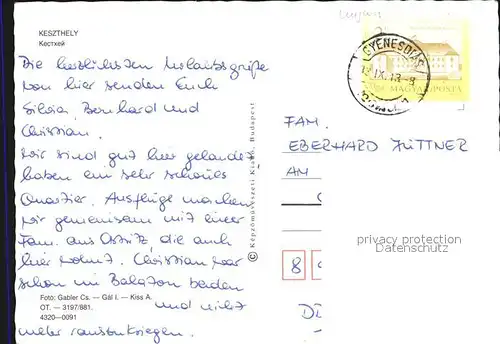 KESZTHELY
Кестхей
Die herzlichsten Urlaubsgrüße
von hier senden Euch
Silvia, Bernhard und
Christian.
Wir sind gut hier gelandet
haben ein sehr schönes
Quartier. Ausflüge machen
wir gemeinsam mit einer
Fam. aus Ostritz, die auch
hier wohnt. Christian war
schon im Balaton baden
und nicht
mehr rauszukriegen.
Foto: Gabler Cs. — Gál I. — Kiss A.
OT. — 3197/881.
4320—0091
© Képzőművészeti Kiadó, Budapest
GYENESDIÁS
MAGYAR POSTA
FAM.
EBERHARD JÜTTNER
AM
privacy protection
OLDTHING.DE
8